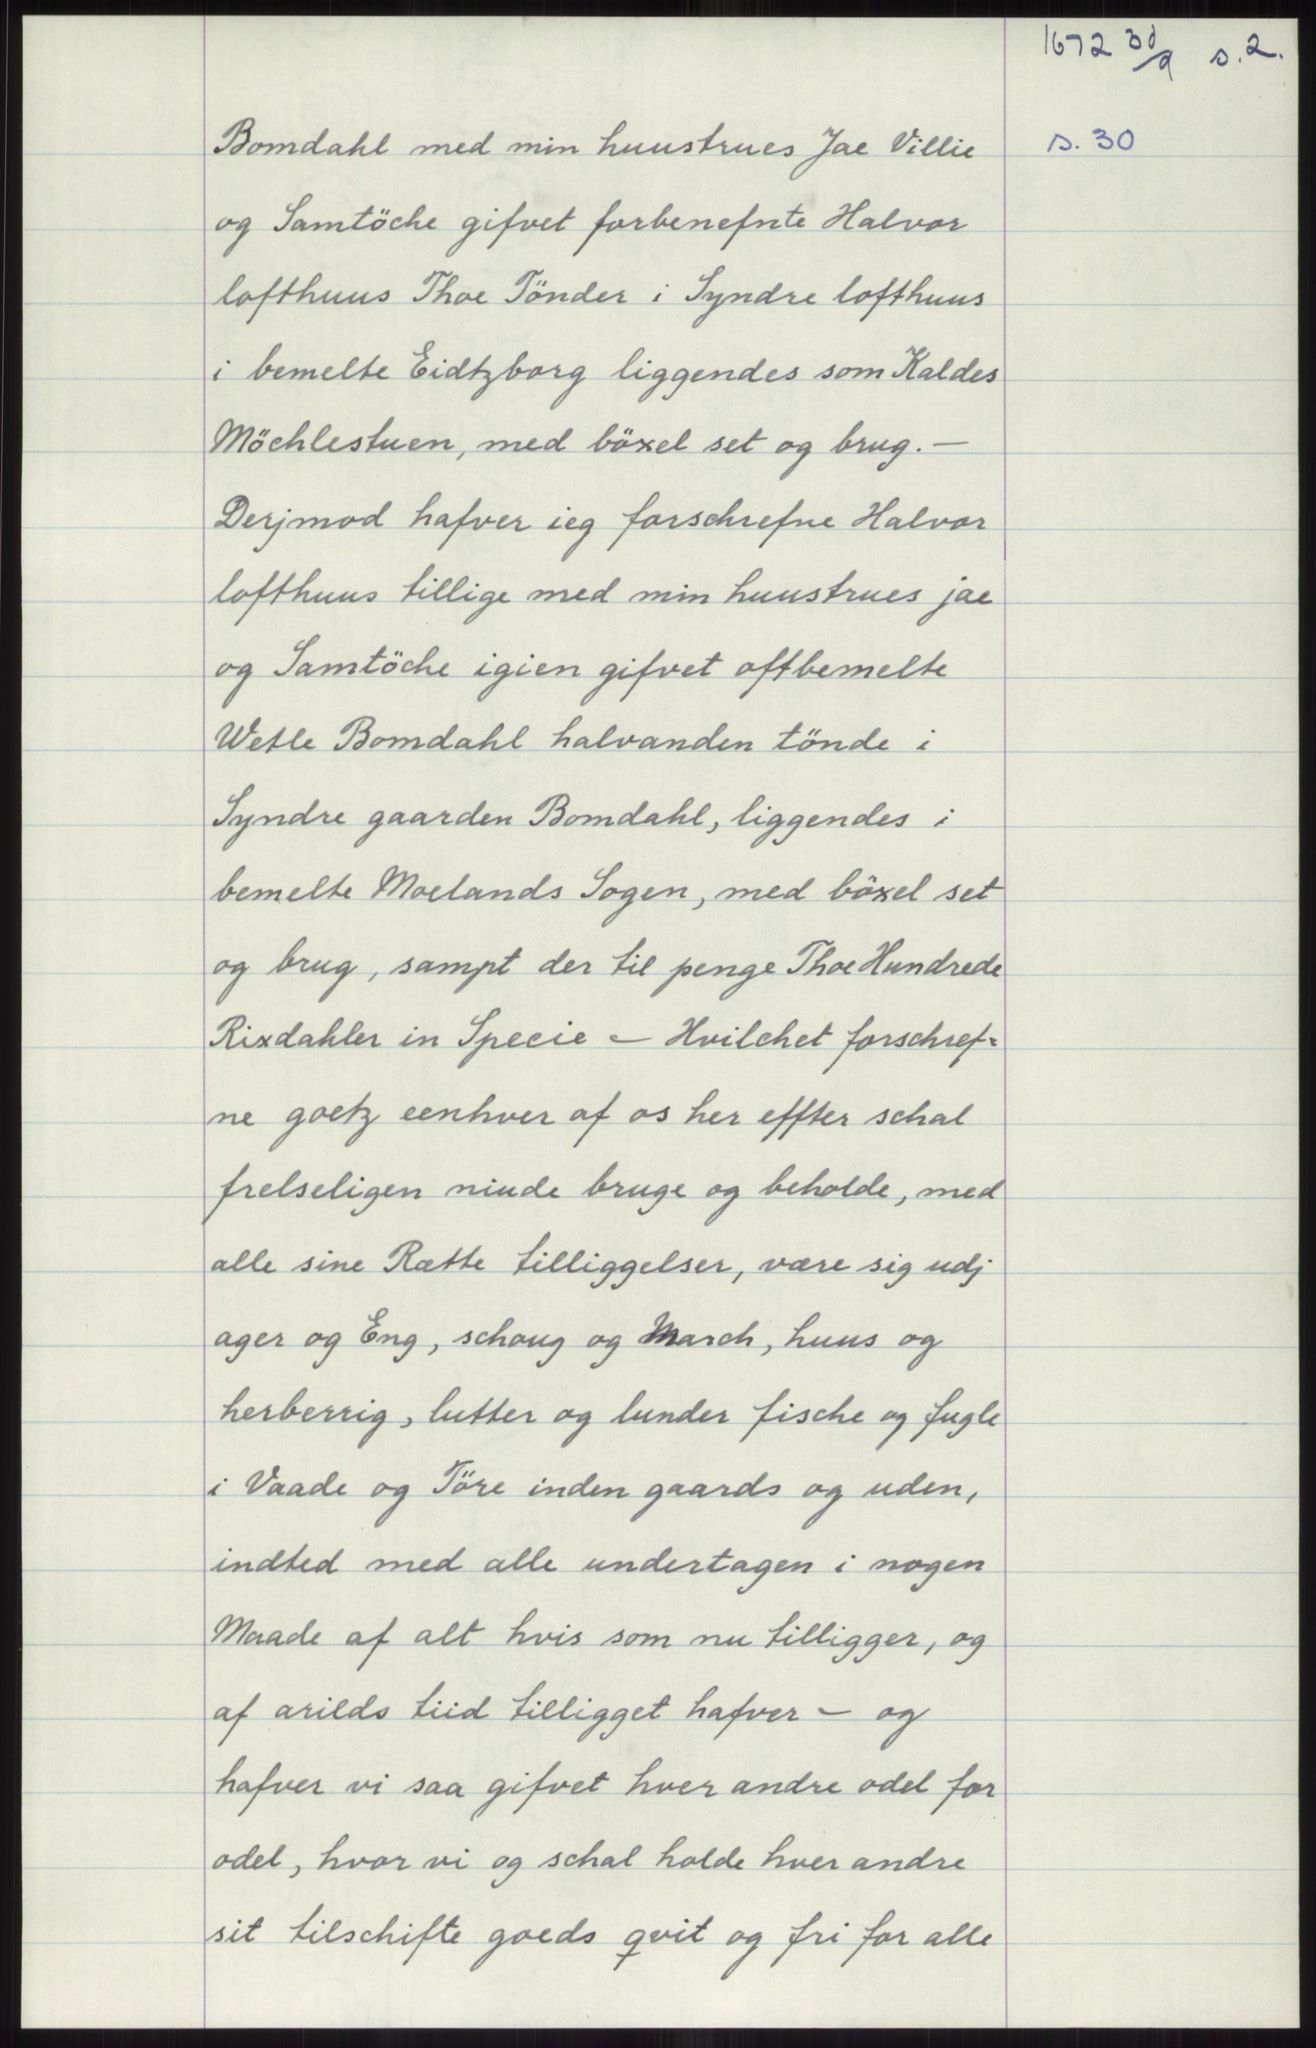 1672 30/9 s. 2.
Bomdahl med min huustrues Jae Villie
s. 30
og Samtöche gifvet forbenefnte Halvor
lofthuus Thoe Tönder i Syndre lofthuus
i bemelte Eidtzborg liggendes som Kaldes
Möchlestuen, med böxel set og brug. —
Derjmod hafver ieg forschrefne Halvor
lofthuus tillige med min huustrues jae
og Samtöche igien gifvet oftbemelte
Wetle Bomdahl halvanden tönde i
Syndre gaarden Bomdahl, liggendes i
bemelte Moelands Sogen, med böxel set
og brug, sampt der til penge Thoe Hundrede
Rixdahler in Specie — Hvilchet forschref=
ne goetz eenhver af os her effter schal
frelseligen niude bruge og beholde, med
alle sine Rætte tilliggelser, være sig udj
ager og Eng, schoug og March, huus og
herberrig, lutter og lunder fische og fugle
i Vaade og Töre inden gaards og uden,
indted med alle undertagen i nogen
Maade af alt hvis som nu tilligger, og
af arilds tiid tilligget hafver — og
hafver vi saa gifvet hver andre odel for
odel, hvor vi og schal holde hver andre
sit tilschifte goeds qvit og fri for alle